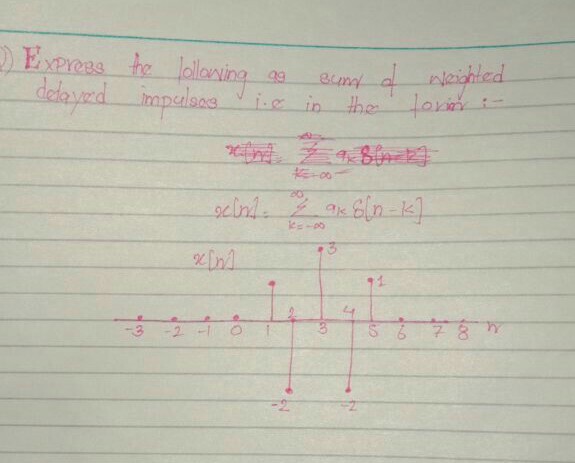 Express the following as sum of weighted
delayed impulses i.e in the form :-
x[n] = ∞ Σ k=-∞ ak δ[n-k]
x[n] = ∞ Σ k=-∞ ak δ[n-k]
x[n] 3
1
-3 -2 -1 0 1 2 3 4 5 6 7 8 n
-2 -2